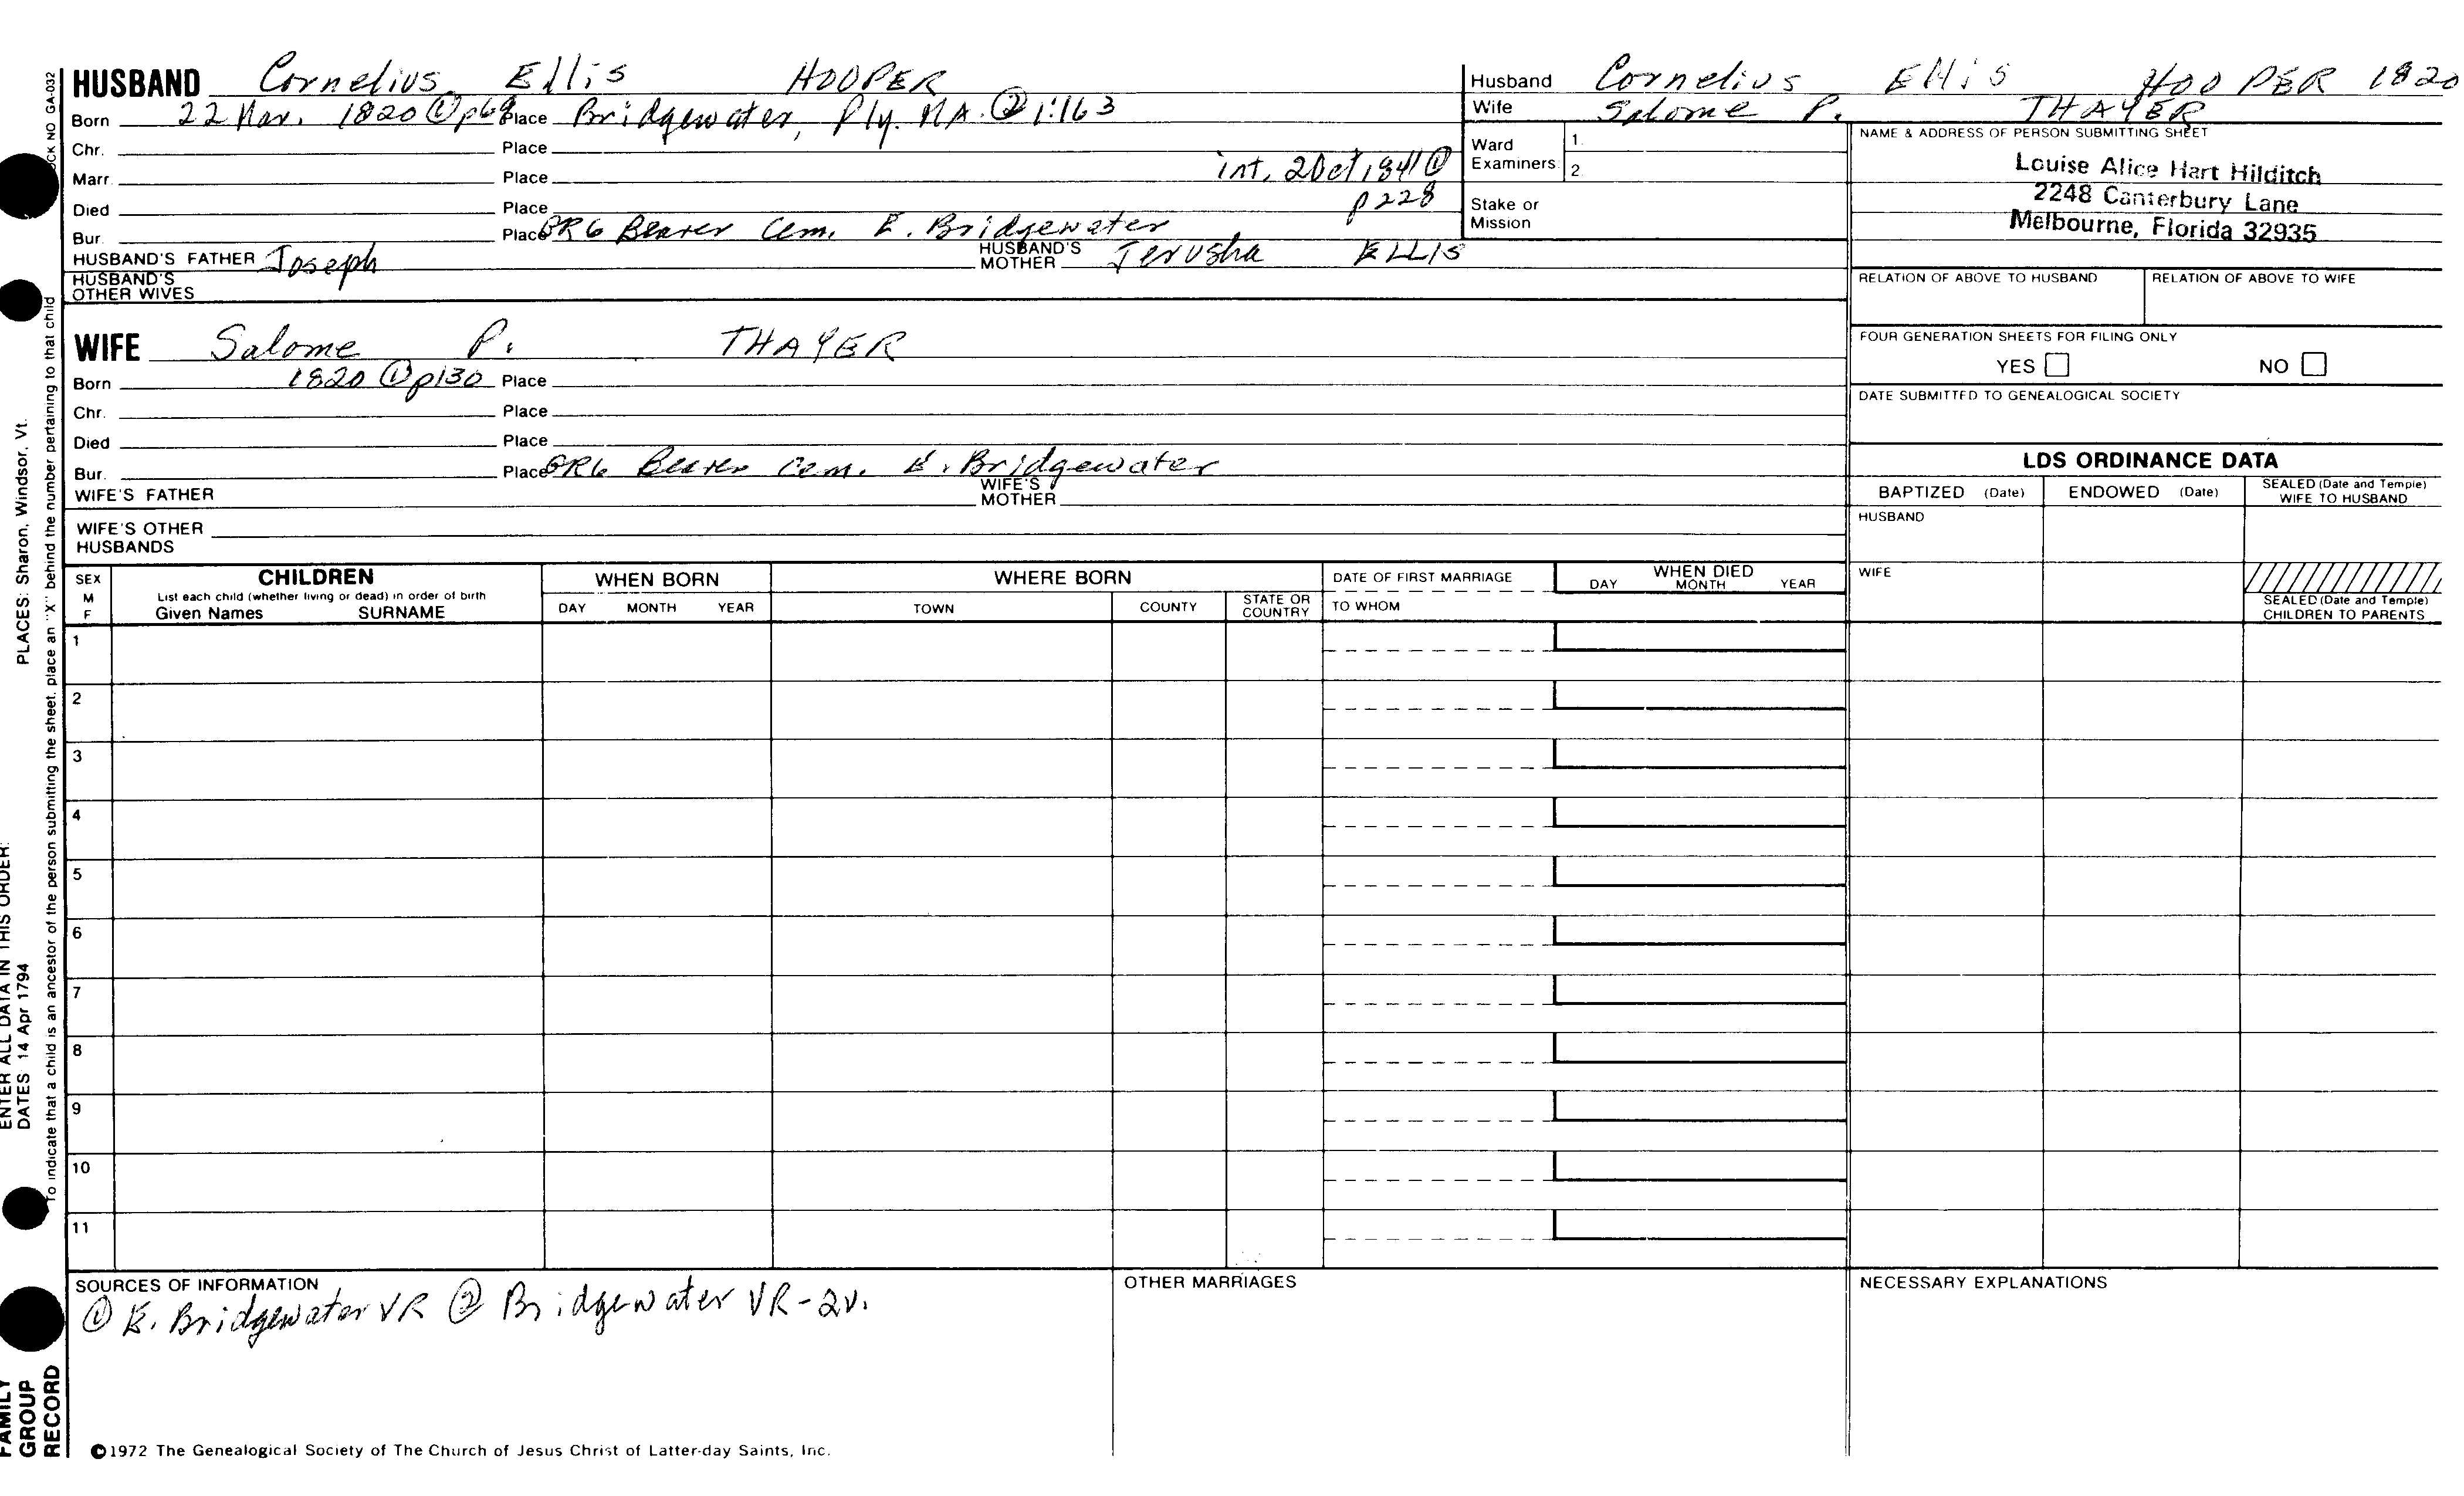 HUSBAND Cornelius Ellis HOOPER
Born 22 Mar. 1820 ① p69 Place Bridgewater, Ply. MA. ② 1:163
Chr. Place
Marr. Place int. 2 Oct 1841 ① p228
Died Place
Bur. Place GR6 Beaver Cem. E. Bridgewater
HUSBAND'S FATHER Joseph HUSBAND'S MOTHER Jerusha ELLIS
HUSBAND'S OTHER WIVES
WIFE Salome P. THAYER
Born 1820 ① p130 Place
Chr. Place
Died Place
Bur. Place GR6 Beaver Cem. E. Bridgewater
WIFE'S FATHER WIFE'S MOTHER
WIFE'S OTHER HUSBANDS
Husband Cornelius Ellis HOOPER 1820
Wife Salome P. THAYER
Ward Examiners 1. 2.
Stake or Mission
NAME & ADDRESS OF PERSON SUBMITTING SHEET
Louise Alice Hart Hilditch
2248 Canterbury Lane
Melbourne, Florida 32935
RELATION OF ABOVE TO HUSBAND RELATION OF ABOVE TO WIFE
FOUR GENERATION SHEETS FOR FILING ONLY
YES NO
DATE SUBMITTED TO GENEALOGICAL SOCIETY
LDS ORDINANCE DATA
BAPTIZED (Date) ENDOWED (Date) SEALED (Date and Temple) WIFE TO HUSBAND
HUSBAND
WIFE
SEALED (Date and Temple) CHILDREN TO PARENTS
SEX M F
CHILDREN
List each child (whether living or dead) in order of birth
Given Names SURNAME
WHEN BORN
DAY MONTH YEAR
WHERE BORN
TOWN COUNTY STATE OR COUNTRY
DATE OF FIRST MARRIAGE
TO WHOM
WHEN DIED
DAY MONTH YEAR
1
2
3
4
5
6
7
8
9
10
11
SOURCES OF INFORMATION
① E. Bridgewater VR ② Bridgewater VR-2v.
OTHER MARRIAGES
NECESSARY EXPLANATIONS
©1972 The Genealogical Society of The Church of Jesus Christ of Latter-day Saints, Inc.
FAMILY GROUP RECORD
ENTER ALL DATA IN THIS ORDER:
DATES 14 Apr 1794
PLACES: Sharon, Windsor, Vt.
To indicate that a child is an ancestor of the person submitting the sheet, place an "X" behind the number pertaining to that child
NO GA-032